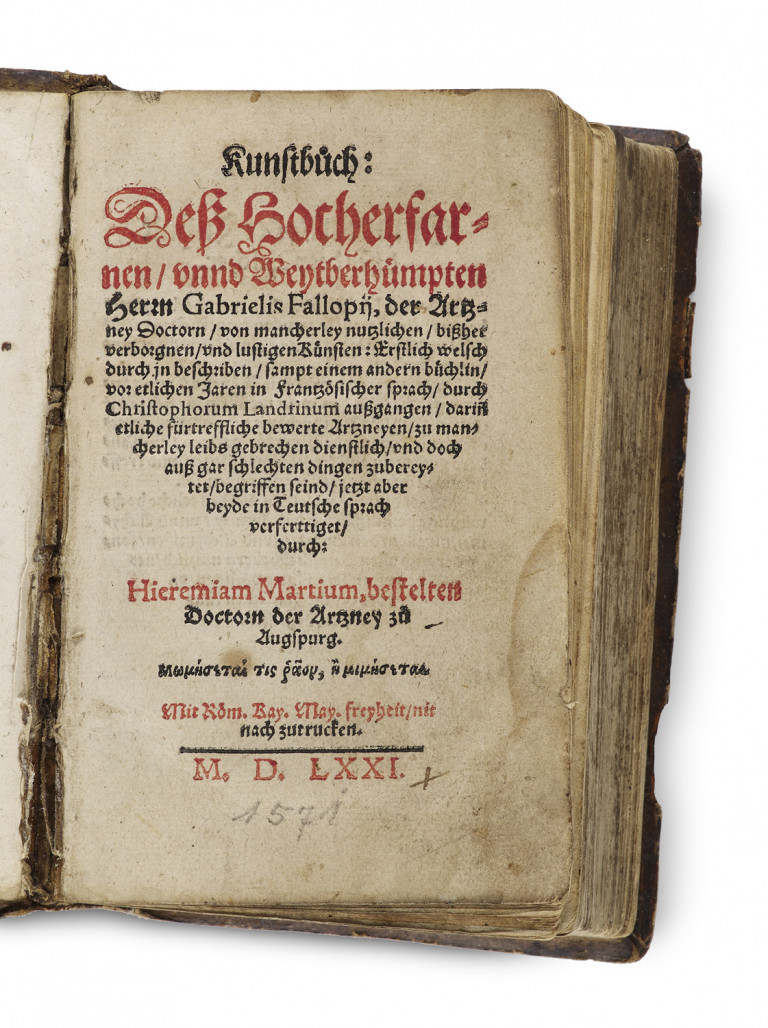 Kunstbůch:
Deß Hocherfar-
nen / vnnd Weytberhümpten
Herrn Gabrielis Fallopij, der Artz-
ney Doctorn / von mancherley nutzlichen / bißher
verborgnen / vnd lustigen Künsten: Erstlich welsch
durch jn beschriben / sampt einem andern büchlin /
vor etlichen Jaren in Frantzösischer sprach / durch
Christophorum Landrinum außgangen / dariñ
etliche fürtreffliche bewerte Artzneyen / zu man-
cherley leibs gebrechen dienstlich / vnd doch
auß gar schlechten dingen zuberey-
tet / begriffen seind / jetzt aber
beyde in Teutsche sprach
verferttiget /
durch:
Hieremiam Martium, bestelten
Doctorn der Artzney zů
Augspurg.
Μωμήσεταί τις ῥᾷον, ἢ μιμήσεται.
Mit Röm. Kay. May. freyheit / nit
nach zutrucken.
M. D. LXXI.
1571